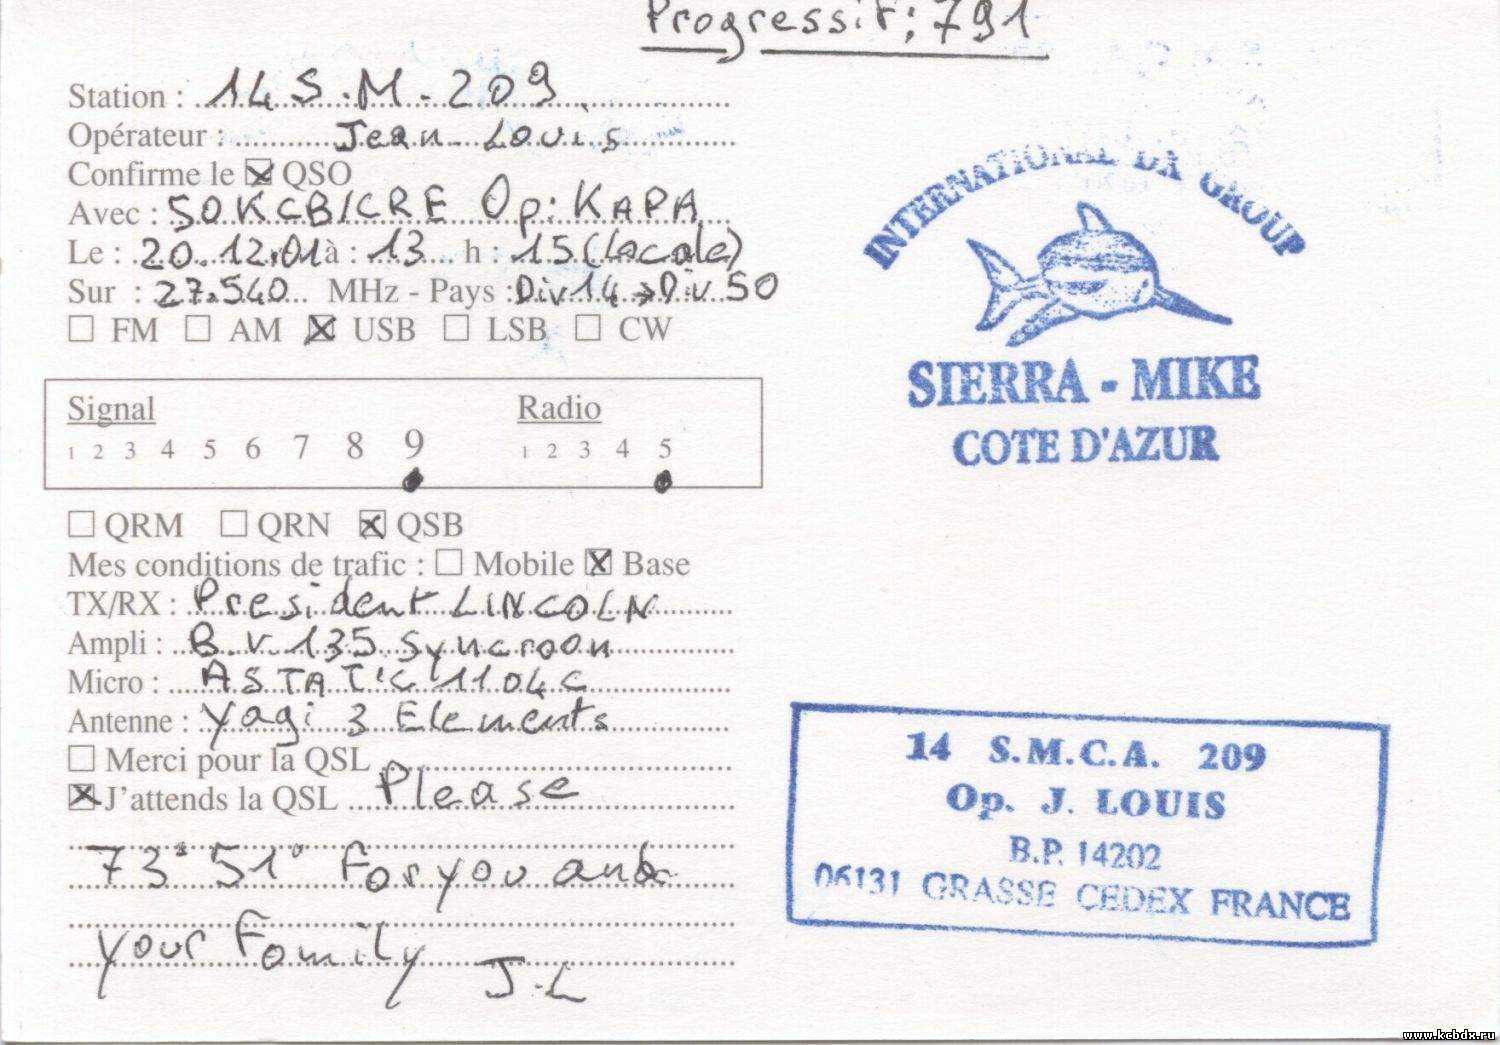 Progressif: 791
Station : 14 S.M-209
Opérateur : Jean-Louis
Confirme le ☒ QSO
Avec : 50KCB/CRE Op: KAPA
Le : 20.12.01 à : 13 h : 15 (Locale)
Sur : 27.540 MHz - Pays : Div 14 → Div 50
☐ FM ☐ AM ☒ USB ☐ LSB ☐ CW
Signal Radio
1 2 3 4 5 6 7 8 9 1 2 3 4 5
☐ QRM ☐ QRN ☒ QSB
Mes conditions de trafic : ☐ Mobile ☒ Base
TX/RX : President LINCOLN
Ampli : B.V 135 Syncroon
Micro : ASTATIC 1104C
Antenne : Yagi 3 Elements
☐ Merci pour la QSL
☒ J'attends la QSL Please
73° 51° For you and
your Family
J.L
INTERNATIONAL DX GROUP
SIERRA - MIKE
COTE D'AZUR
14 S.M.C.A. 209
Op. J. LOUIS
B.P. 14202
06131 GRASSE CEDEX FRANCE
www.kcbdx.ru